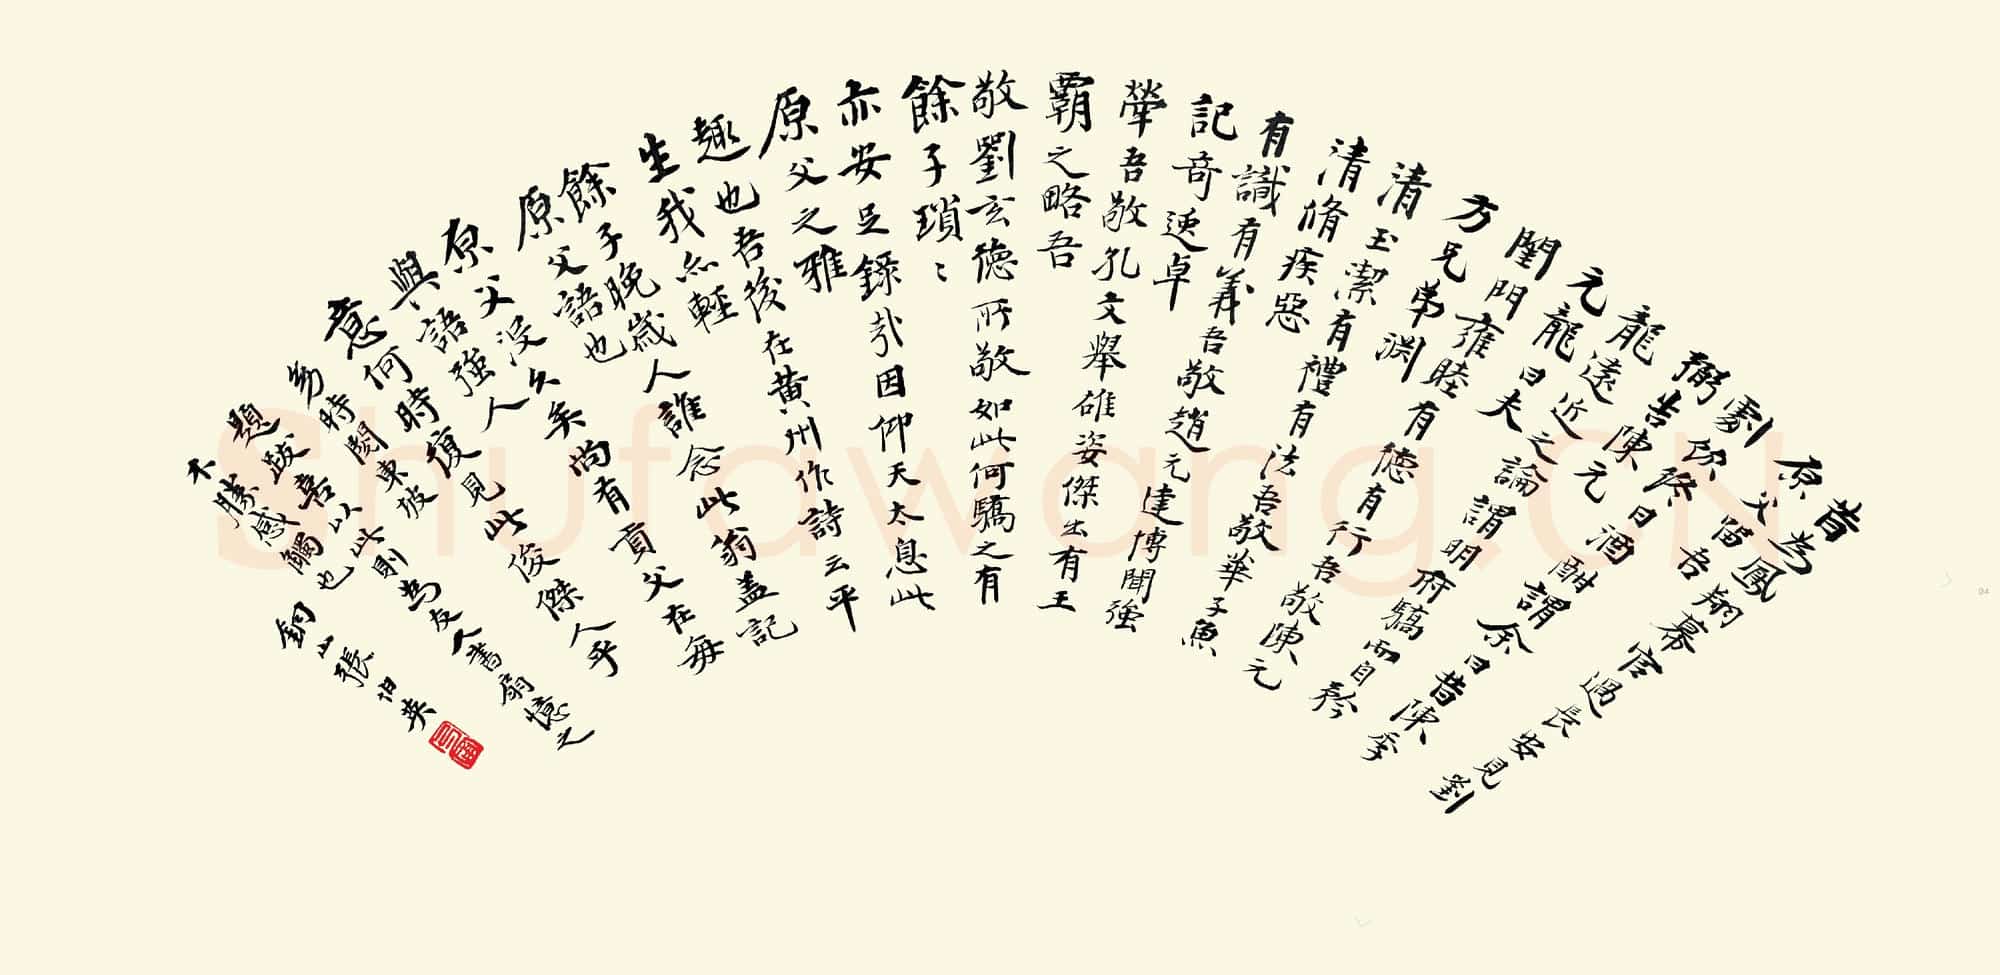 昔為鳳翔幕官過長安見劉
原父留吾
劇飲數日酒酣謂余曰昔陳季
弼告陳元
龍遠近之論謂明府驕而自矜
元龍曰夫
閨門雍睦有德有行吾敬陳元
方兄弟淵
清玉潔有禮有法吾敬華子魚
清脩疾惡
有識有義吾敬趙元達博聞強
記奇逸卓
犖吾敬孔文舉雄姿傑出有王
霸之略吾
敬劉玄德所敬如此何驕之有
餘子瑣〻
亦安足錄哉因仰天太息此
原父之雅
趣也吾後在黃州作詩云平
生我亦輕
餘子晚歲人誰念此翁蓋記
原父語也
原父沒久矣尚有貢父在每
與語強人
意何時復見此俊傑人乎
幼時閱東坡
題跋喜以此則為友人書扇憶之
不勝感觸也
銅山張伯英
Shufawang.CN